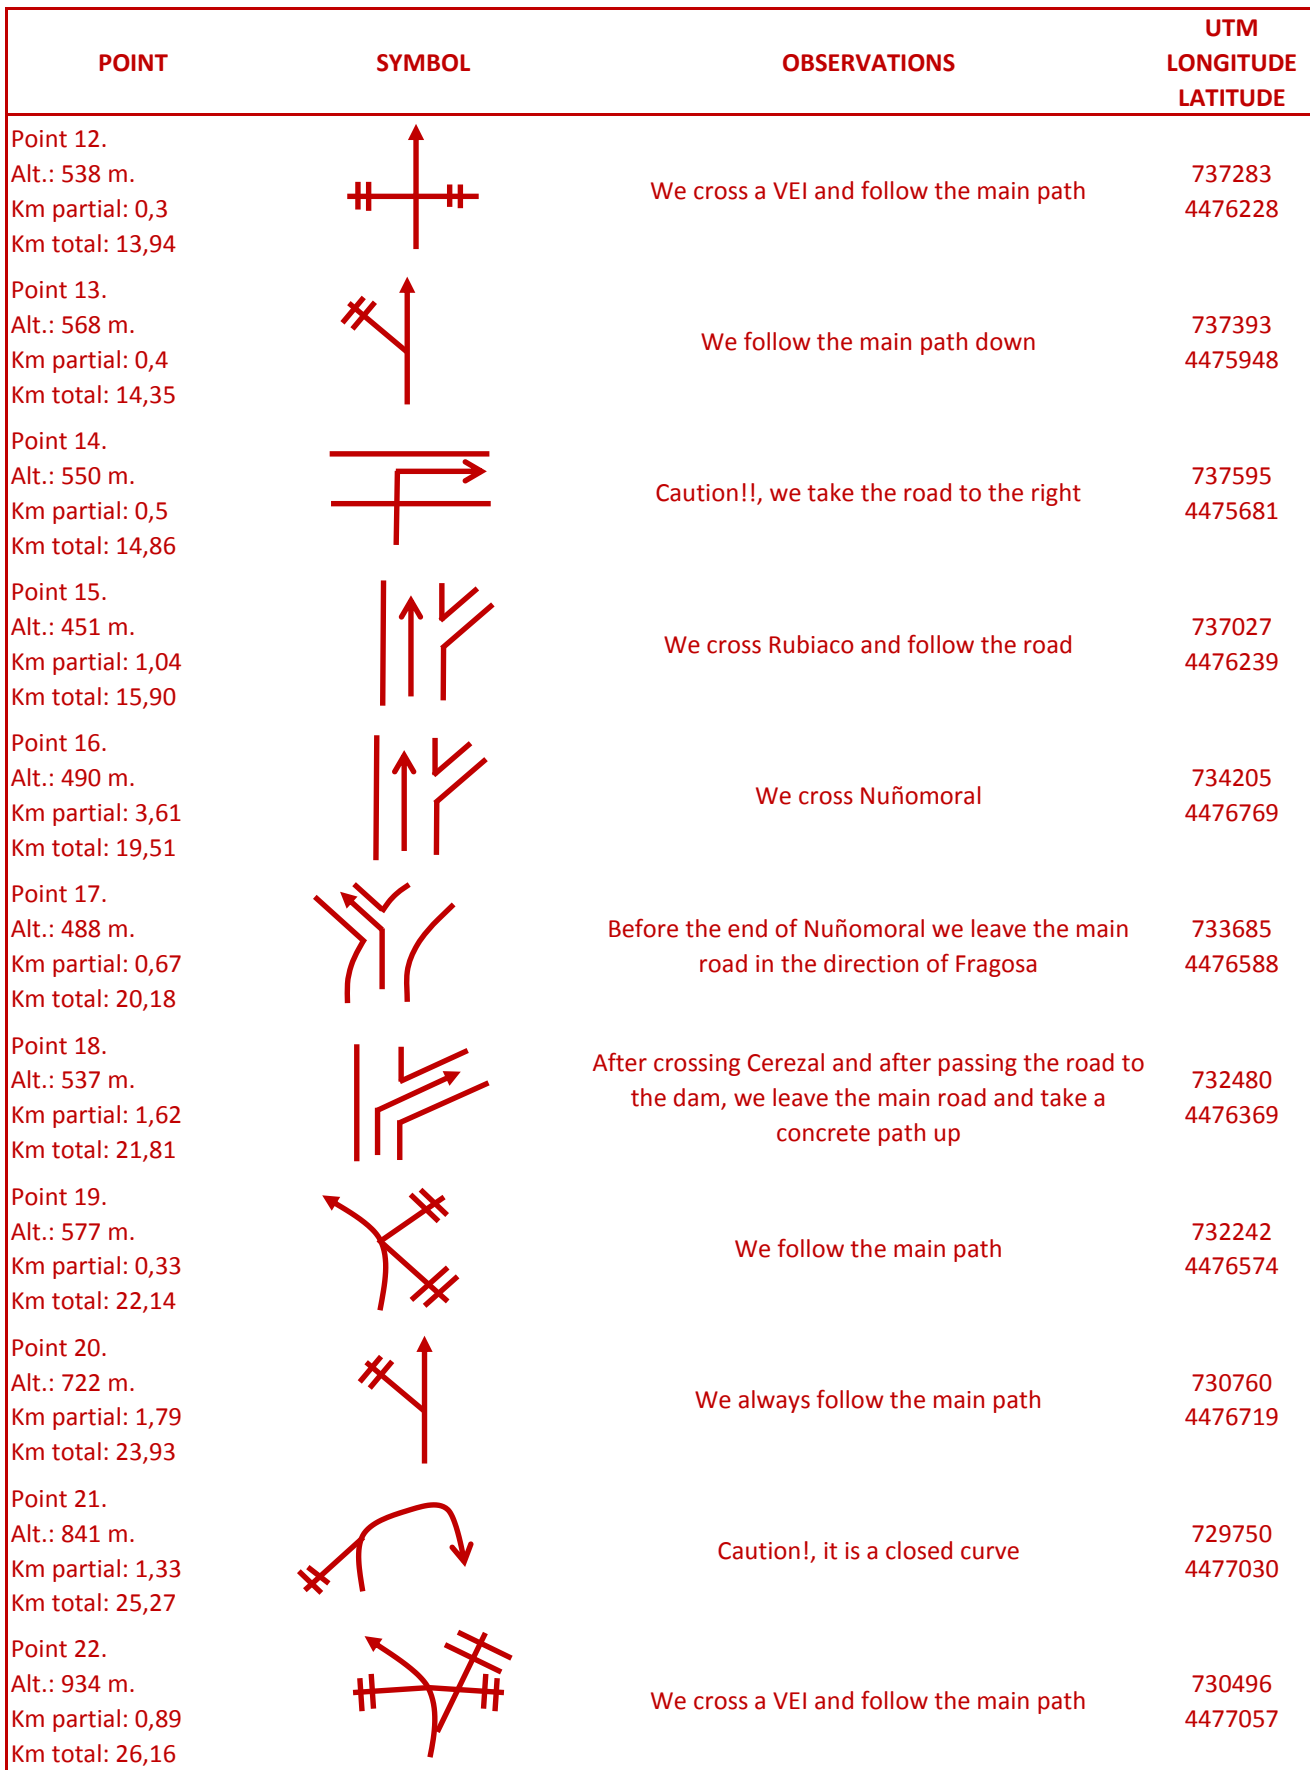 POINT SYMBOL OBSERVATIONS UTM
LONGITUDE
LATITUDE
Point 12.
Alt.: 538 m.
Km partial: 0,3
Km total: 13,94
We cross a VEI and follow the main path
737283
4476228
Point 13.
Alt.: 568 m.
Km partial: 0,4
Km total: 14,35
We follow the main path down
737393
4475948
Point 14.
Alt.: 550 m.
Km partial: 0,5
Km total: 14,86
Caution!!, we take the road to the right
737595
4475681
Point 15.
Alt.: 451 m.
Km partial: 1,04
Km total: 15,90
We cross Rubiaco and follow the road
737027
4476239
Point 16.
Alt.: 490 m.
Km partial: 3,61
Km total: 19,51
We cross Nuñomoral
734205
4476769
Point 17.
Alt.: 488 m.
Km partial: 0,67
Km total: 20,18
Before the end of Nuñomoral we leave the main
road in the direction of Fragosa
733685
4476588
Point 18.
Alt.: 537 m.
Km partial: 1,62
Km total: 21,81
After crossing Cerezal and after passing the road to
the dam, we leave the main road and take a
concrete path up
732480
4476369
Point 19.
Alt.: 577 m.
Km partial: 0,33
Km total: 22,14
We follow the main path
732242
4476574
Point 20.
Alt.: 722 m.
Km partial: 1,79
Km total: 23,93
We always follow the main path
730760
4476719
Point 21.
Alt.: 841 m.
Km partial: 1,33
Km total: 25,27
Caution!, it is a closed curve
729750
4477030
Point 22.
Alt.: 934 m.
Km partial: 0,89
Km total: 26,16
We cross a VEI and follow the main path
730496
4477057